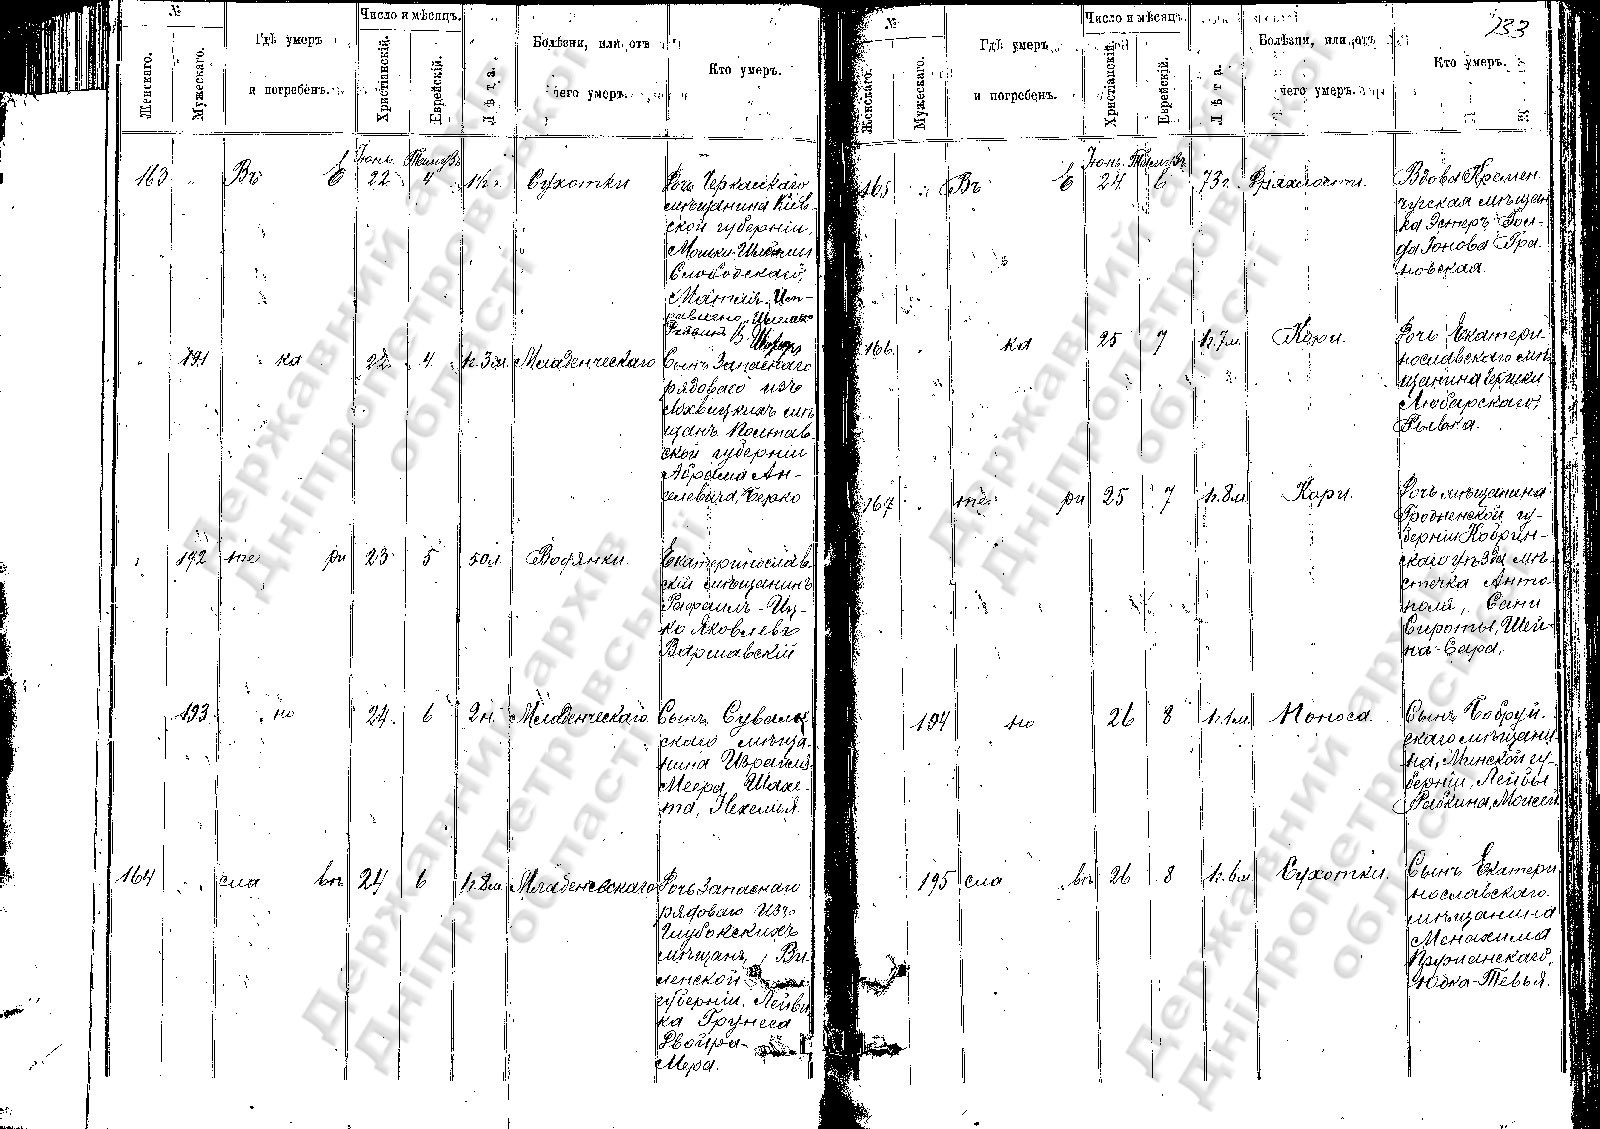 №
Женскаго.
Мужескаго.
Гдѣ умеръ
и погребенъ.
Число и мѣсяцъ.
Христіанскій.
Еврейскій.
Лѣта.
Болѣзни, или отъ
чего умеръ.
Кто умеръ.
163 Въ Е Іюнь 22 Тамузъ 4 1½ г. Сухотки
Дочь Черкаскаго
мѣщанина Кіев-
ской губерніи,
Мошки-Шлемы
Слободскаго,
191 ка 22 4 1г. 3м. Младенческаго
Сынъ Запаснаго
рядоваго изъ
Лохвицкихъ мѣ
щанъ Полтав-
ской губерніи
Абрама Ан-
челевича, Берко
192 те ри 23 5 50л. Водянки.
Екатеринослав-
скій мѣщанинъ
Рафаилъ-Иц-
ко Яковлевъ
Варшавскій
193 но 24 6 2н. Младенческаго
Сынъ Сувалк
скаго мѣща-
нина Израиля-
Меера Шахе-
та, Нехемья
164 сла въ 24 6 1г. 8м. Младенческаго
Дочь Запаснаго
рядоваго изъ
Глубокскихъ
мѣщанъ, Ви
ленской
губерніи, Лейви
ка Грунеса
Двойра-
Мера.
№
Женскаго.
Мужескаго.
Гдѣ умеръ
и погребенъ.
Число и мѣсяцъ.
Христіанскій.
Еврейскій.
Лѣта.
Болѣзни, или отъ
чего умеръ.
Кто умеръ.
233
165 Въ Е Іюнь 24 Тамузъ 6 73г. Дряхлости.
Вдова Кремен
чугская мѣщан
ка Эстеръ Гол-
да Іонова Гра-
новская.
166 ка 25 7 1г. 7м. Кори.
Дочь Екатери-
нославскаго мѣ
щанина Гершки
Любарскаго,
Рывка.
167 те ри 25 7 1г. 8м Кори.
Дочь мѣщанина
Гродненской гу-
берніи Кобрин-
скаго уѣзда мѣ
стечка Анто-
поля,
Сироты, Шей-
на-Сара,
194 но 26 8 1г. 1м. Поноса.
Сынъ Бобруй-
скаго мѣщани-
на, Минской гу-
берніи, Лейбы
Рабкина, Моисей
195 сла въ 26 8 1г. 6м Сухотки.
Сынъ Екатери
нославскаго
мѣщанина
Менахима
Пружанскаго,
Юдка-Тевья.
Державний архів
Дніпропетровської
області
Державний архів
Дніпропетровської
області
Державний архів
Дніпропетровської
області
Державний архів
Дніпропетровської
області